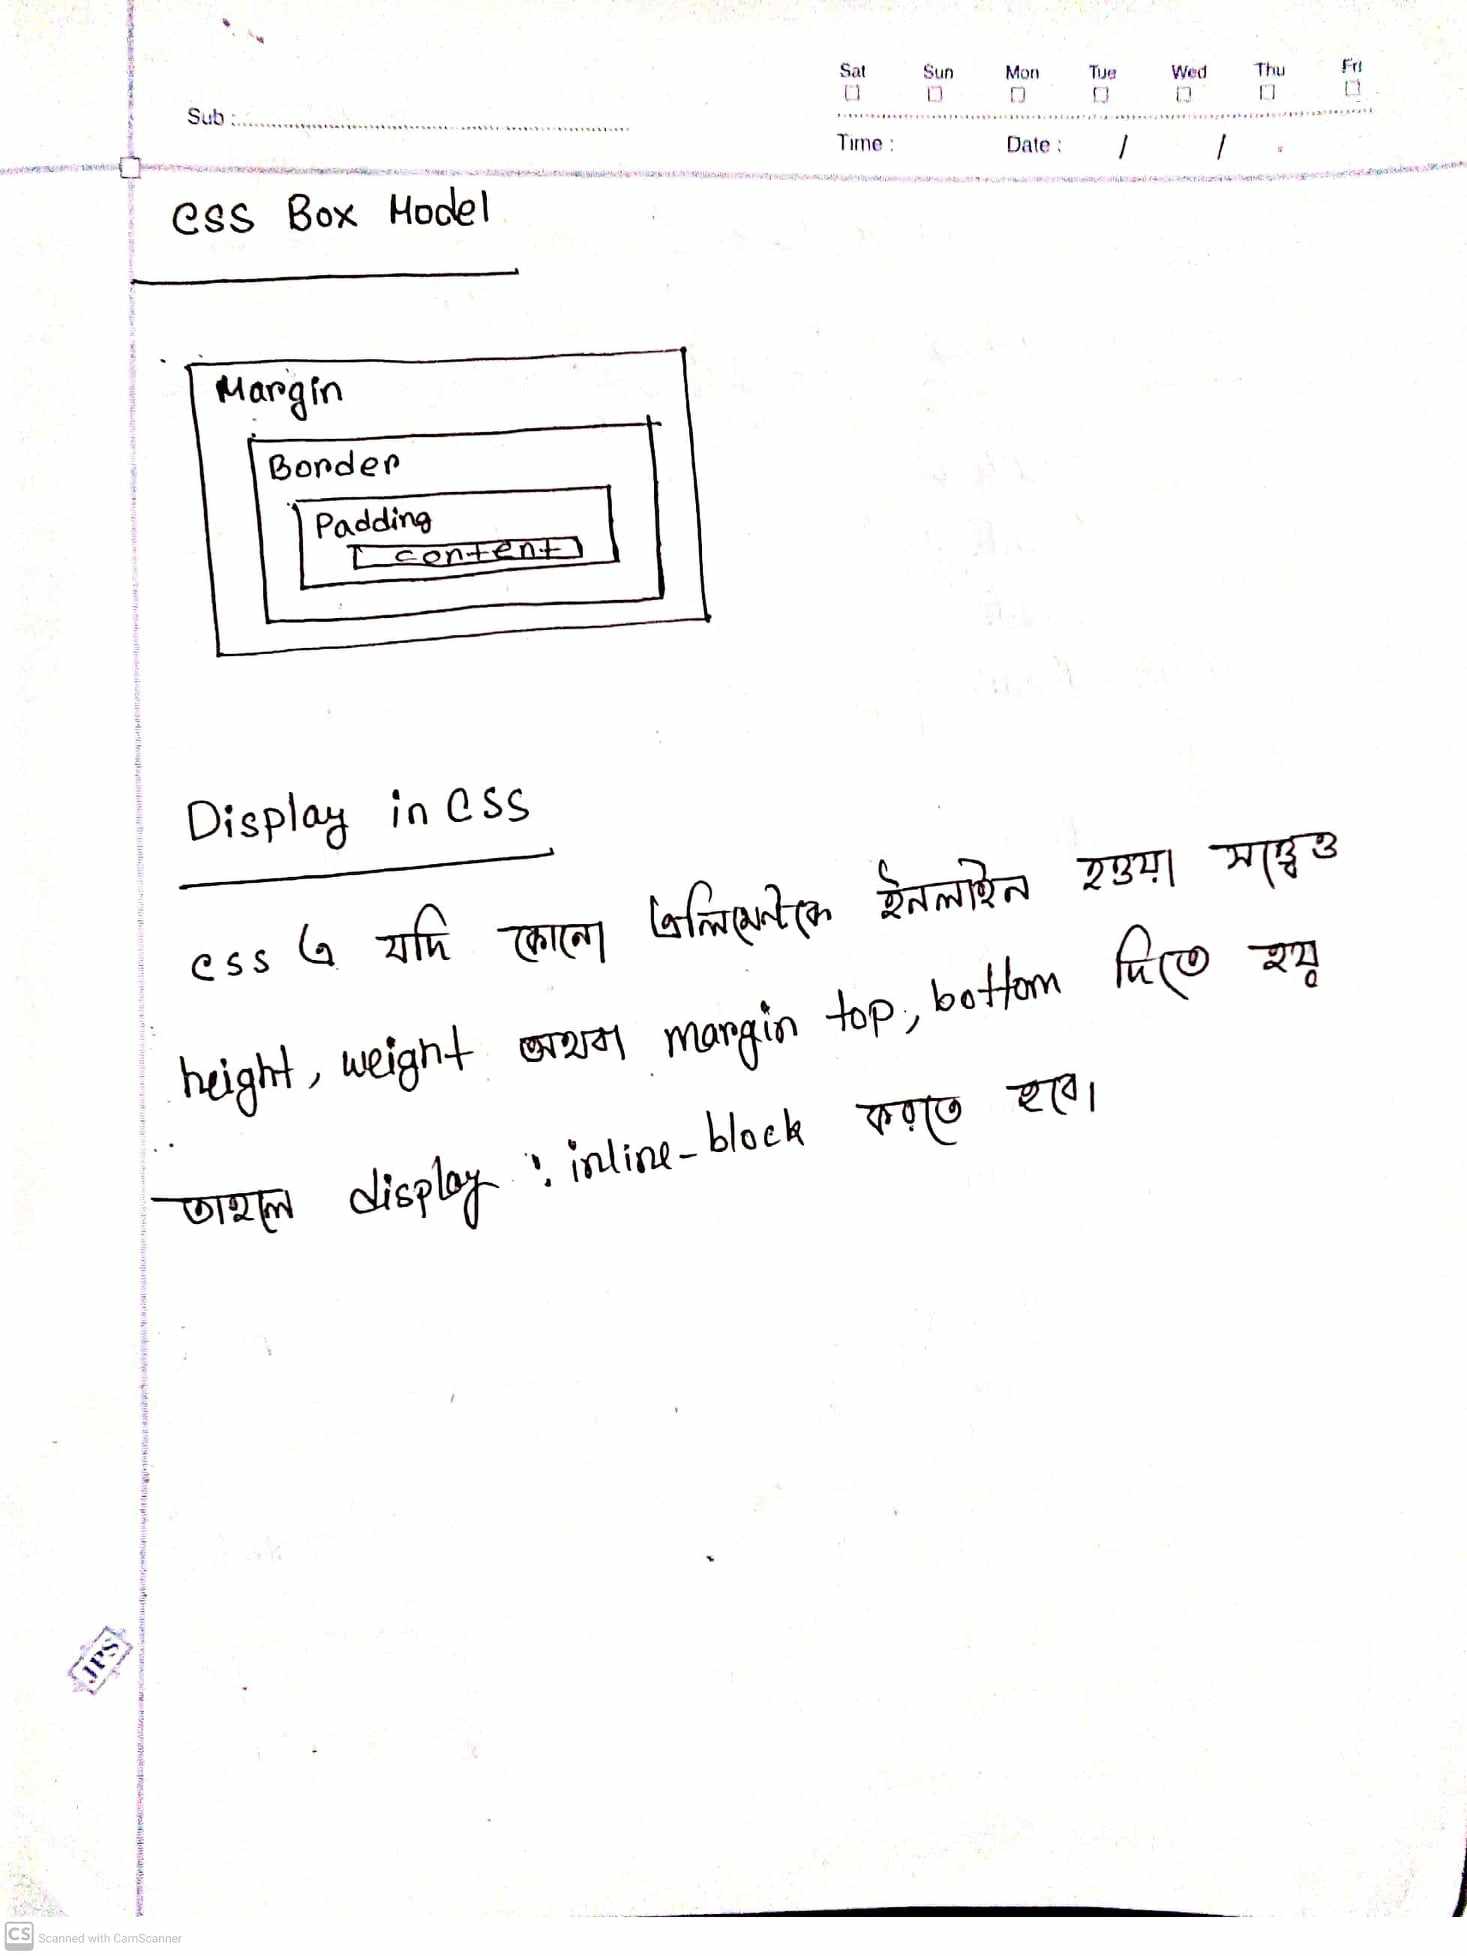 Sat Sun Mon Tue Wed Thu Fri
Sub :
Time : Date : / /
CSS Box Model
Margin
Border
Padding
content
Display in CSS
css এ যদি কোনো এলিমেন্টকে ইনলাইন হওয়া সত্ত্বেও
height, weight অথবা margin top, bottom দিতে হয়
তাহলে display : inline-block করতে হবে।
JPS
CS Scanned with CamScanner